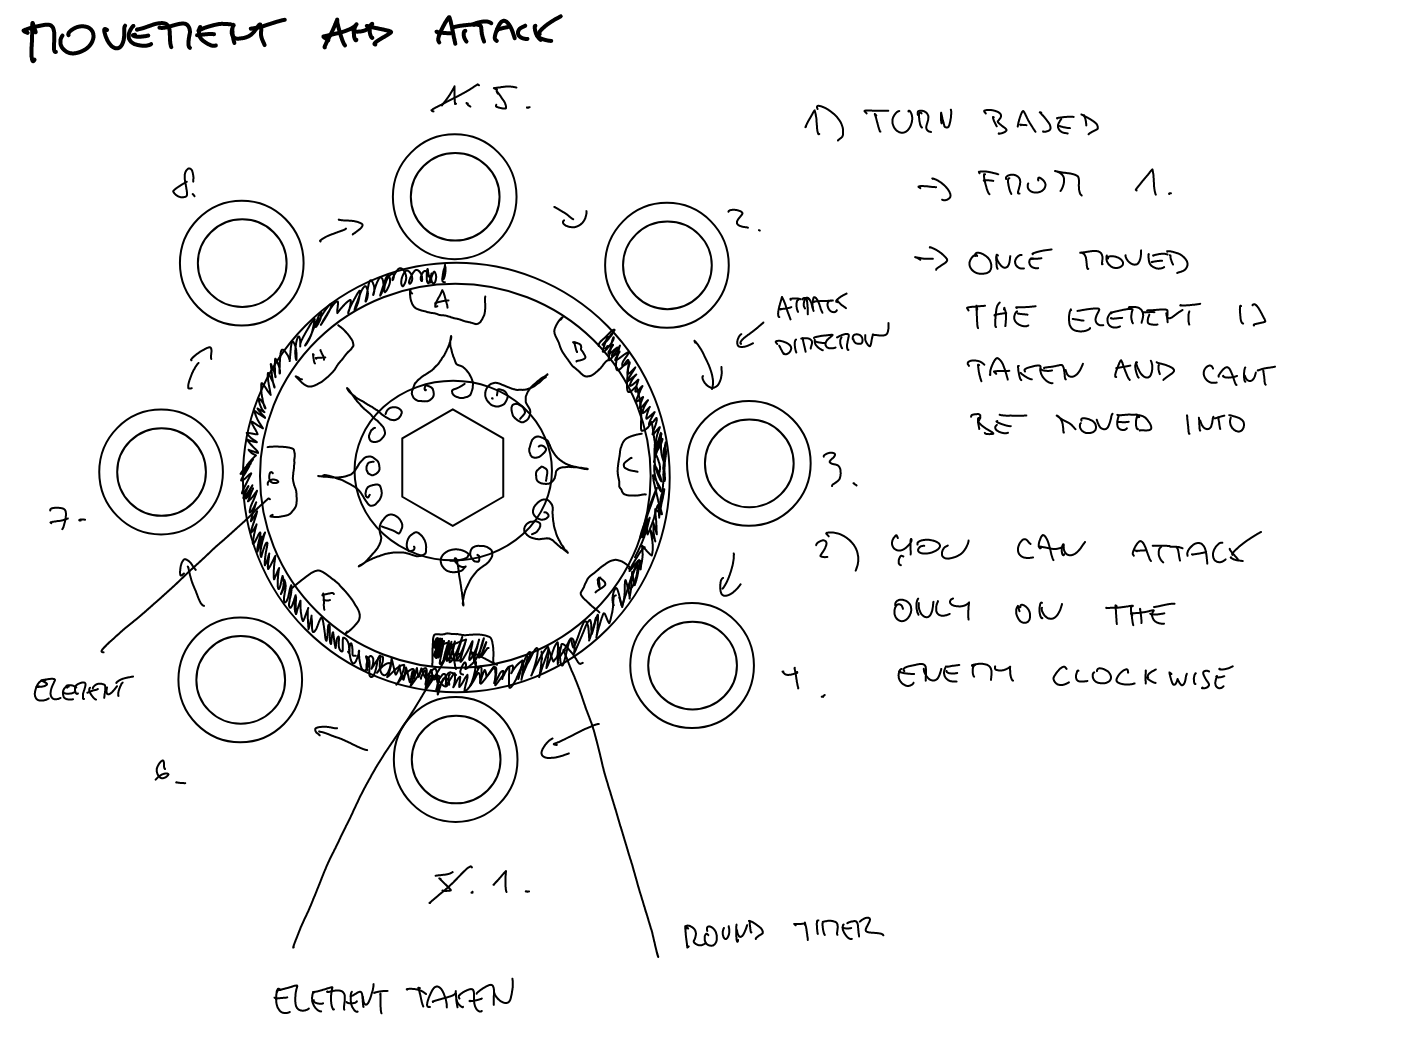 MOVEMENT AND ATTACK
1. 5.
8.
2.
ATTACK
DIRECTION
3.
4.
5. 1.
6.
7.
A
B
C
D
F
G
H
ELEMENT
ELEMENT TAKEN
ROUND TIMER
1) TURN BASED
→ FROM 1.
→ ONCE MOVED
THE ELEMENT IS
TAKEN AND CANT
BE MOVED INTO
2) YOU CAN ATTACK
ONLY ON THE
ENEMY CLOCKWISE